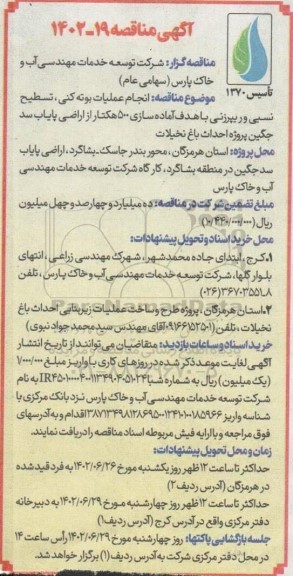 آگهی مناقصه ۱۹-۱۴۰۲
تأسیس ۱۳۷۰
مناقصه گزار: شرکت توسعه خدمات مهندسی آب و
خاک پارس (سهامی عام)
موضوع مناقصه: انجام عملیات بوته کنی، تسطیح
نسبی و ریپرزنی با هدف آماده سازی ۵۰۰ هکتار از اراضی پایاب سد
جگین پروژه احداث باغ نخیلات
محل پروژه: استان هرمزگان، محور بندر جاسک-بشاگرد، اراضی پایاب
سد جگین در منطقه بشاگرد، کارگاه شرکت توسعه خدمات مهندسی
آب و خاک پارس
مبلغ تضمین شرکت در مناقصه: ده میلیارد و چهارصد و چهل میلیون
ریال (۱۰/۴۴۰/۰۰۰/۰۰۰)
محل خرید اسناد و تحویل پیشنهادات:
۱.کرج، ابتدای جاده محمدشهر، شهرک مهندسی زراعی، انتهای
بلوار گلها، شرکت توسعه خدمات مهندسی آب و خاک پارس، تلفن
۳۶۷۰۳۵۵۱،۸ (۰۲۶)
۲.استان هرمزگان، پروژه طرح و ساخت عملیات زیربنایی احداث باغ
نخیلات، تلفن (۰۹۱۶۶۱۵۲۵۰۱ آقای مهندس سید محمد جواد نبوی)
خرید اسناد و ساعات بازدید: متقاضیان می توانند از تاریخ انتشار
آگهی لغایت موعد ذکر شده در روزهای کاری با واریز مبلغ ۱/۰۰۰/۰۰۰
(یک میلیون) ریال به شماره شبا IR به نام
شرکت توسعه خدمات مهندسی آب و خاک پارس نزد بانک مرکزی با
شناسه واریز اقدام و به آدرسهای
فوق مراجعه و با ارایه فیش مربوطه اسناد مناقصه را دریافت نمایند.
زمان و محل تحویل پیشنهادات:
حداکثر تا ساعت ۱۲ ظهر روز یکشنبه مورخ ۱۴۰۲/۰۶/۲۶ به فرد قید شده
در هرمزگان (آدرس ردیف ۲)
حداکثر تا ساعت ۱۲ ظهر روز چهارشنبه مورخ ۱۴۰۲/۰۶/۲۹ به دبیرخانه
دفتر مرکزی واقع در آدرس کرج (آدرس ردیف ۱)
جلسه بازگشایی پاکتها: روز چهارشنبه مورخ ۱۴۰۲/۰۶/۲۹ رأس ساعت ۱۴
در محل دفتر مرکزی شرکت به آدرس ردیف (۱) برگزار خواهد شد.